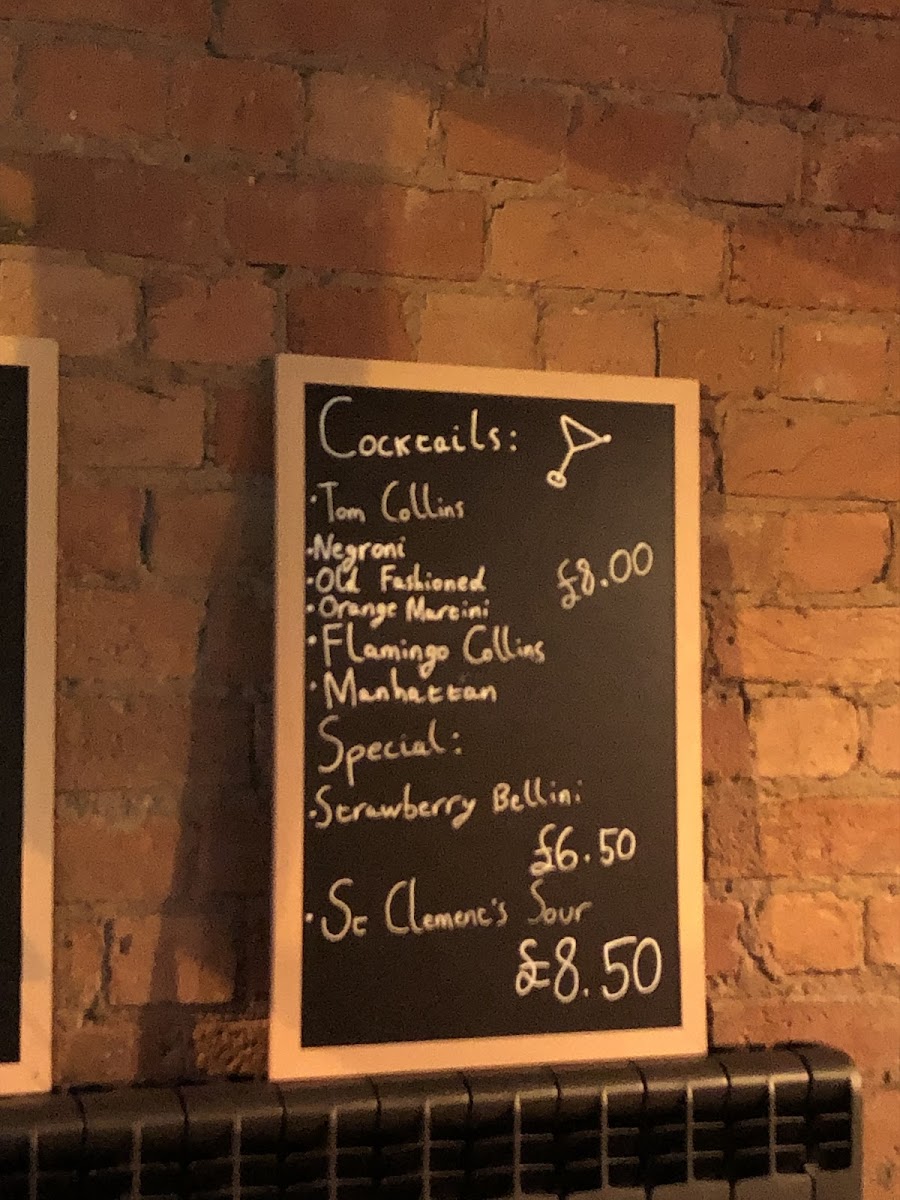 Cocktails:
·Tom Collins
·Negroni
·Old Fashioned
£8.00
·Orange Martini
·Flamingo Collins
·Manhattan
Special:
·Strawberry Bellini
£6.50
·St Clement's Sour
£8.50